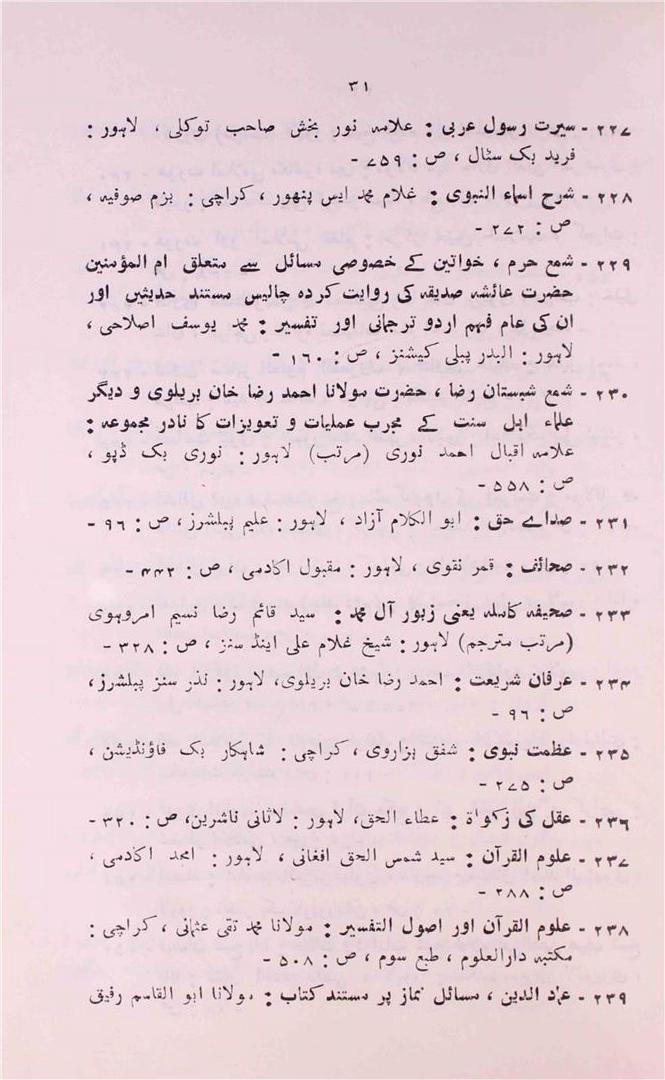 ۳۱
۲۲۷ - سیرت رسول عربی : علامہ نور بخش صاحب توکلی ، لاہور :
فرید بک سٹال ، ص : ۷۵۹ -
۲۲۸ - شرح اسماء النبوی : غلام محمد ایس پنھور ، کراچی : بزم صوفیہ ،
ص : ۲۷۲ -
۲۲۹ - شمع حرم ، خواتین کے خصوصی مسائل سے متعلق ام المؤمنین
حضرت عائشہ صدیقہ کی روایت کردہ چالیس مستند حدیثیں اور
ان کی عام فہم اردو ترجمانی اور تفسیر : محمد یوسف اصلاحی ،
لاہور : البدر پبلی کیشنز ، ص : ۱۶۰ -
۲۳۰ - شمع شبستان رضا ، حضرت مولانا احمد رضا خان بریلوی و دیگر
علماء اہل سنت کے مجرب عملیات و تعویزات کا نادر مجموعہ :
علامہ اقبال احمد نوری (مرتب) لاہور : نوری بک ڈپو ،
ص : ۵۵۸ -
۲۳۱ - صداے حق : ابو الکلام آزاد ، لاہور : علیم پبلشرز ، ص : ۹۶ -
۲۳۲ - صحائف : قمر نقوی ، لاہور : مقبول اکادمی ، ص : ۴۴۲ -
۲۳۳ - صحیفہ کاملہ یعنی زبور آل محمد : سید قائم رضا نسیم امروہوی
(مرتب مترجم) لاہور : شیخ غلام علی اینڈ سنز ، ص : ۳۲۸ -
۲۳۴ - عرفان شریعت : احمد رضا خان بریلوی، لاہور : نذر سنز پبلشرز،
ص : ۹۶ -
۲۳۵ - عظمت نبوی : شفق ہزاروی ، کراچی : شاہکار بک فاؤنڈیشن ،
ص : ۲۷۵ -
۲۳۶ - عقل کی زکواة : عطاء الحق، لاہور : لاثانی ناشرین، ص : ۳۲۰ -
۲۳۷ - علوم القرآن : سید شمس الحق افغانی ، لاہور : امجد اکادمی ،
ص : ۲۸۸ -
۲۳۸ - علوم القرآن اور اصول التفسیر : مولانا محمد تقی عثمانی ، کراچی :
مکتبہ دارالعلوم ، طبع سوم ، ص : ۵۰۸ -
۲۳۹ - عماد الدین ، مسائل نماز پر مستند کتاب : مولانا ابو القاسم رفیق